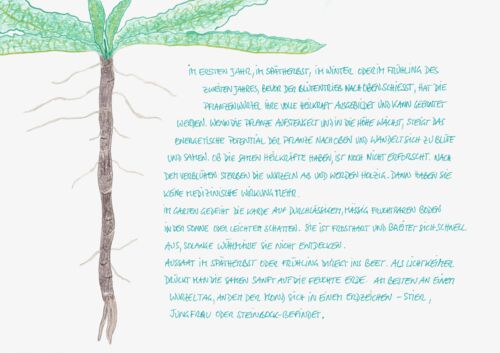 IM ERSTEN JAHR, IM SPÄTHERBST, IM WINTER ODER IM FRÜHLING DES
ZWEITEN JAHRES, BEVOR DER BLÜTENTRIEB NACH OBEN SCHIESST, HAT DIE
PFLANZENWURZEL IHRE VOLLE HEILKRAFT AUSGEBILDET UND KANN GEERNTET
WERDEN. WENN DIE PFLANZE AUFSTENGELT UND IN DIE HÖHE WÄCHST, STEIGT DAS
ENERGETISCHE POTENTIAL DER PFLANZE NACH OBEN UND WANDELT SICH ZU BLÜTE
UND SAMEN. OB DIE SAMEN HEILKRÄFTE HABEN, IST NOCH NICHT ERFORSCHT. NACH
DEM VERBLÜHEN STERBEN DIE WURZELN AB UND WERDEN HOLZIG. DANN HABEN SIE
KEINE MEDIZINISCHE WIRKUNG MEHR.
IM GARTEN GEDEIHT DIE KARDE AUF DURCHLÄSSIGEM, MÄSSIG FRUCHTBAREN BODEN
IN DER SONNE ODER LEICHTEM SCHATTEN. SIE IST FROSTHART UND BREITET SICH SCHNELL
AUS, SOLANGE WÜHLMÄUSE SIE NICHT ENTDECKEN.
AUSSAAT IM SPÄTHERBST ODER FRÜHLING DIREKT INS BEET. ALS LICHTKEIMER
DRÜCKT MAN DIE SAMEN SANFT AUF DIE FEUCHTE ERDE. AM BESTEN AN EINEM
WURZELTAG, AN DEM DER MOND SICH IN EINEM ERDZEICHEN – STIER,
JUNGFRAU ODER STEINBOCK – BEFINDET.